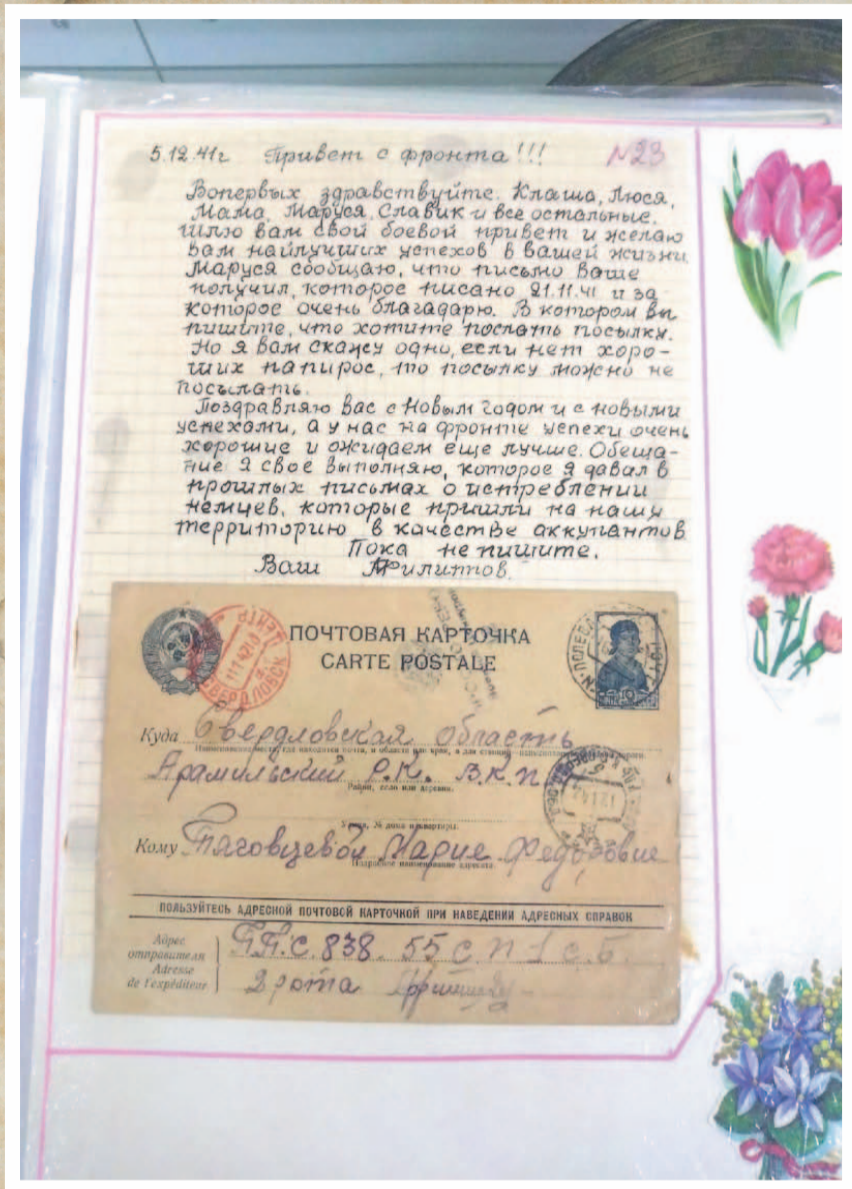 5.12.41г Привет с фронта!!! №23
Вопервых здравствуйте. Клаша, Люся,
Мама, Маруся, Славик и все остальные.
Шлю вам свой боевой привет и желаю
Вам наилучших успехов в вашей жизни.
Маруся сообщаю, что письмо Ваше
получил, которое писано 21.11.41 и за
которое очень благадарю. В котором вы
пишите, что хотите послать посылку.
Но я вам скажу одно, если нет хоро-
ших папирос, то посылку можно не
посылать.
Поздравляю Вас с Новым годом и с новыми
успехами, а у нас на фронте успехи очень
хорошие и ожидаем еще лучше. Обеща-
ние я своё выполняю, которое я давал в
прошлых письмах о истреблении
немцев, которые пришли на нашу
территорию в качестве аккупантов.
Пока не пишите.
Ваш Филиппов.
ПОЧТОВАЯ КАРТОЧКА
CARTE POSTALE
Куда Свердловская область
Арамильский Р.К. В.К.П.
Район, село или деревня.
Улица, № дома и квартиры.
Кому Тяговцевой Марие Федоровне
Подробное наименование адресата.
ПОЛЬЗУЙТЕСЬ АДРЕСНОЙ ПОЧТОВОЙ КАРТОЧКОЙ ПРИ НАВЕДЕНИИ АДРЕСНЫХ СПРАВОК
Адрес отправителя П.П.С. 838. 55 с.п 1 с.б.
Adresse de l'expéditeur 2 рота